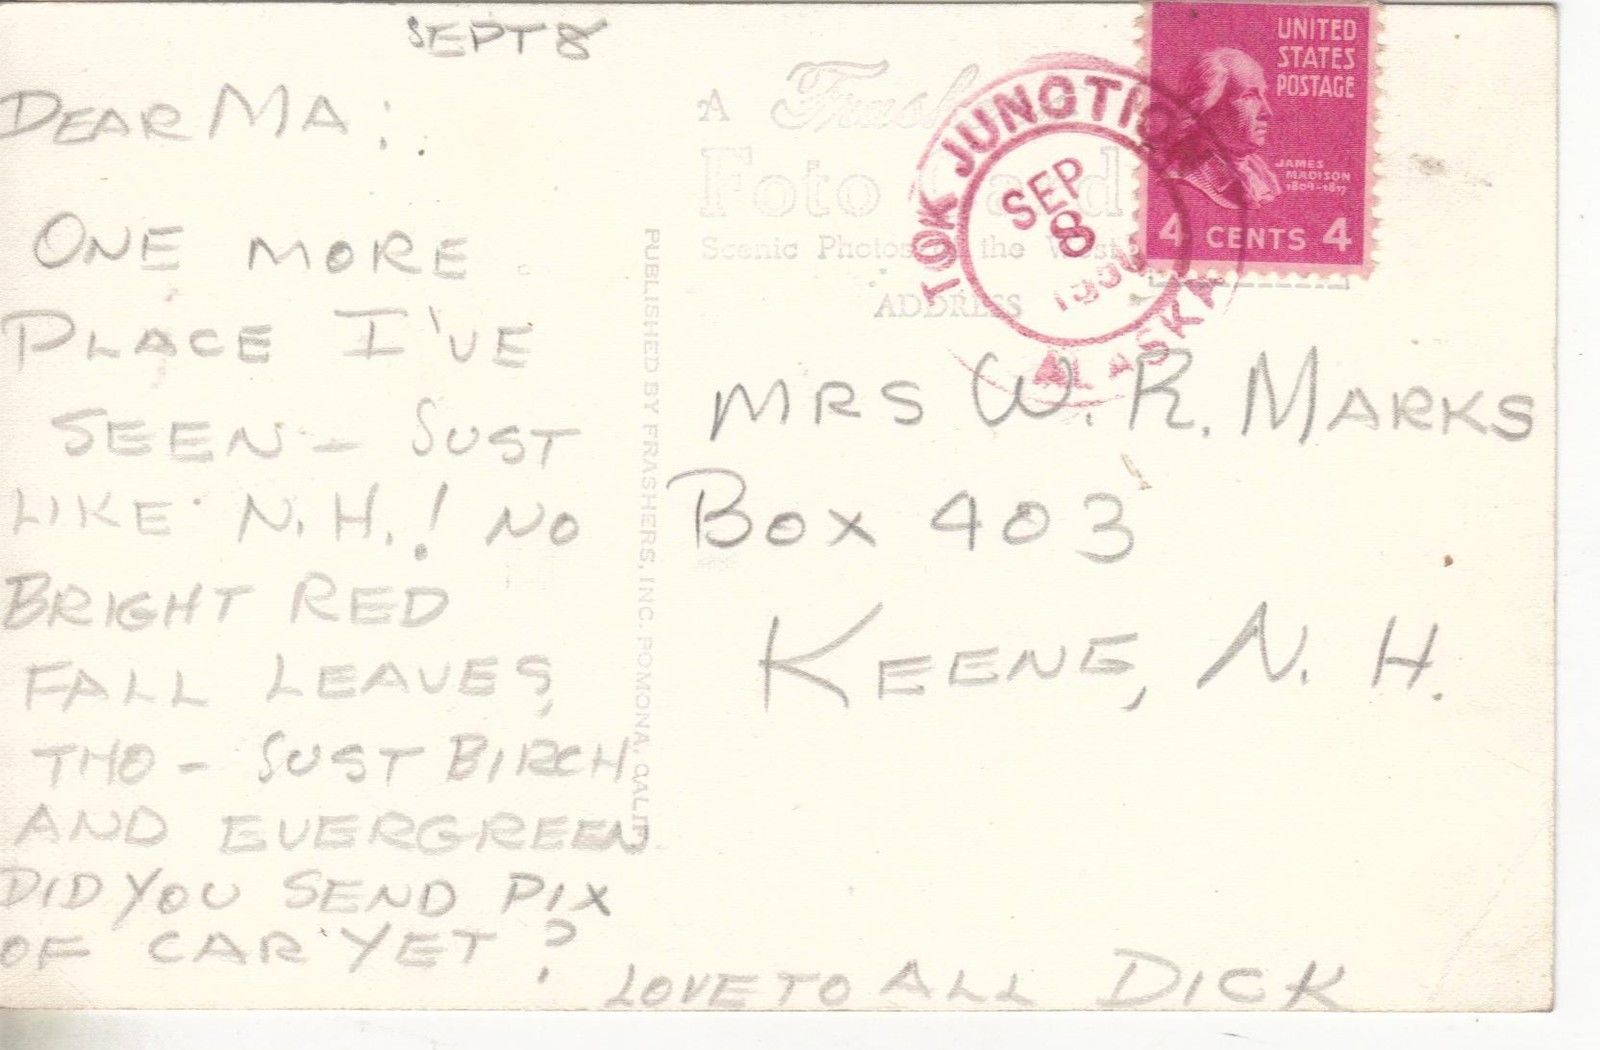 SEPT 8
DEAR MA:
ONE MORE
PLACE I'VE
SEEN - JUST
LIKE N.H.! NO
BRIGHT RED
FALL LEAVES,
THO - JUST BIRCH
AND EVERGREEN
DID YOU SEND PIX
OF CAR YET?
LOVE TO ALL DICK
PUBLISHED BY FRASHERS, INC. POMONA, CALIF.
A
Foto
Scenic Photos of the West
ADDRESS
TOK JUNCTION
SEP
8
ALASKA
UNITED
STATES
POSTAGE
JAMES
MADISON
1809-1817
4 CENTS 4
MRS W. R. MARKS
BOX 403
KEENE, N. H.